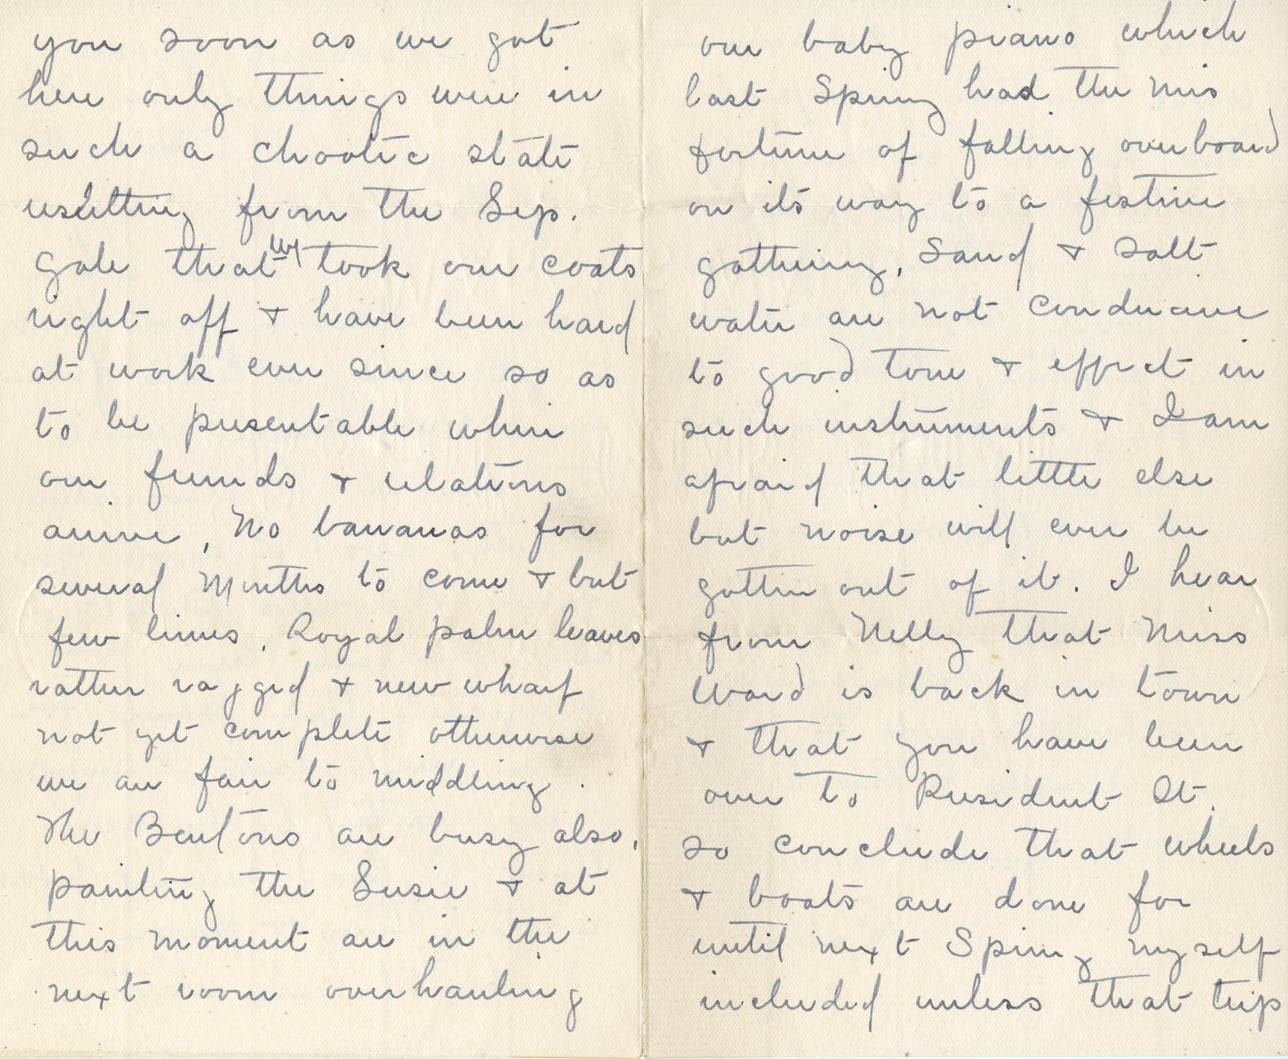 you soon as we got
here only things were in
such a chaotic state
resulting from the Sep.
Gale that we took our coats
right off & have been hard
at work ever since so as
to be presentable when
our friends & relations
arrive, No bananas for
several Months to come & but
few limes, Royal palm leaves
rather ragged & new wharf
not yet complete otherwise
we are fair to middling.
The Bentons are busy also,
painting the Susie & at
this moment are in the
next room overhauling
our baby piano which
last Spring had the mis
fortune of falling overboard
on its way to a festive
gathering, Sand & Salt
water are not conducive
to good tone & effect in
such instruments & I am
afraid that little else
but noise will ever be
gotten out of it. I hear
from Nelly that Miss
Ward is back in town
& that you have been
over to President St.
so conclude that wheels
& boats are done for
until next Spring myself
included unless that trip